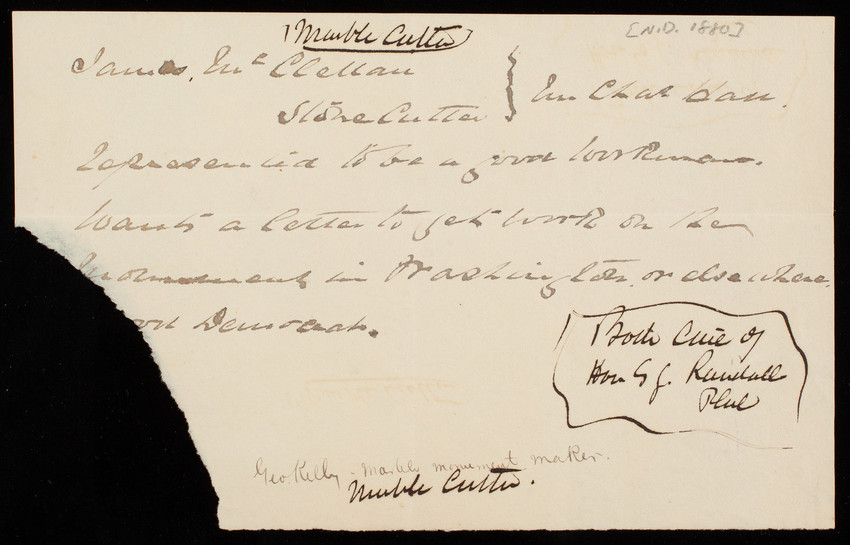 Marble Cutter
[N.D. 1880]
James Mc Clellan
Stone Cutter
Represented to be a good workman.
Wants a letter to get work on the
Monument in Washington or elsewhere.
Good Democrat.
Both
of
Hon S J. Randall
Phil
Geo Kelly - Marble monument maker.
Marble Cutter.